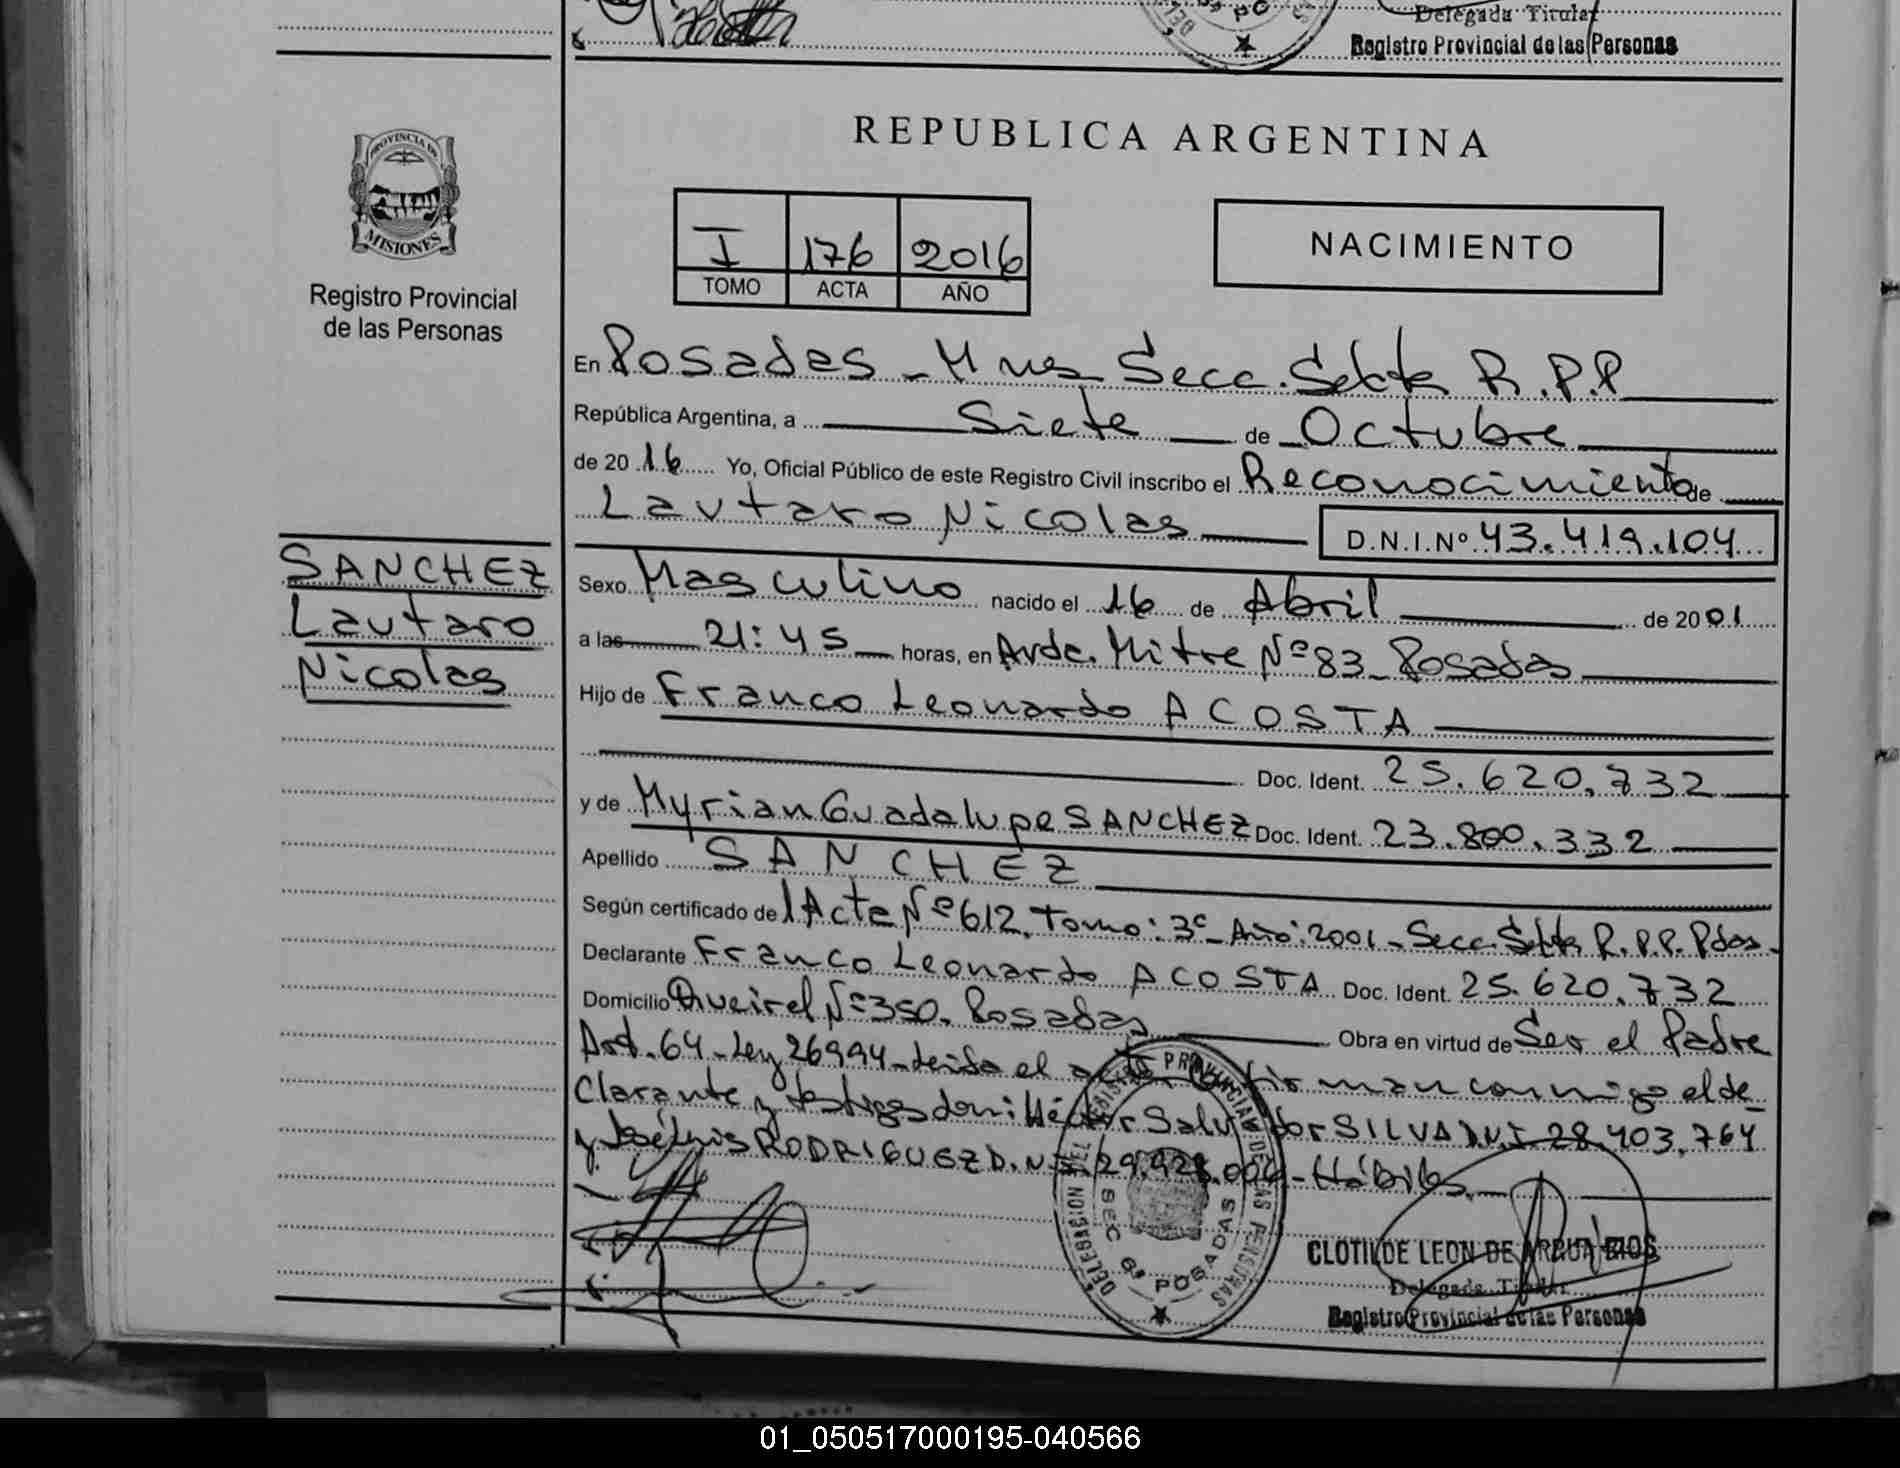 Delegada Titular
Registro Provincial de las Personas
PROVINCIA DE
MISIONES
Registro Provincial
de las Personas
SANCHEZ
Lautaro
Nicolas
REPUBLICA ARGENTINA
I 176 2016
TOMO ACTA AÑO
NACIMIENTO
En Posadas - Mnes Secc. Sexta R.P.P
República Argentina, a Siete de Octubre
de 2016 Yo, Oficial Público de este Registro Civil inscribo el Reconocimiento de
Lautaro Nicolas D.N.I.Nº 43.419.104
Sexo Masculino nacido el 16 de Abril de 2001
a las 21:45 horas, en Avda. Mitre Nº 83 - Posadas
Hijo de Franco Leonardo ACOSTA
Doc. Ident. 25.620.732
y de Myrian Guadalupe SANCHEZ Doc. Ident. 23.800.332
Apellido SANCHEZ
Según certificado de Acta Nº 612. Tomo: 3º - Año: 2001 - Secc. Sexta R.P.P. Pdas -
Declarante Franco Leonardo ACOSTA Doc. Ident. 25.620.732
Domicilio Queirel Nº 350. Posadas Obra en virtud de Ser el Padre
Art. 64 - Ley 26994 - Leida el acta firman conmigo el de-
clarante y testigos don: Héctor Salvador SILVA D.N.I 28.403.764
y José Luis RODRIGUEZ D.N.I. Hábiles
DELEGACION DEL REGISTRO PROVINCIAL DE LAS PERSONAS
SEC 6ª POSADAS
CLOTILDE LEON DE
Delegada Titular
Registro Provincial de las Personas
01_050517000195-040566